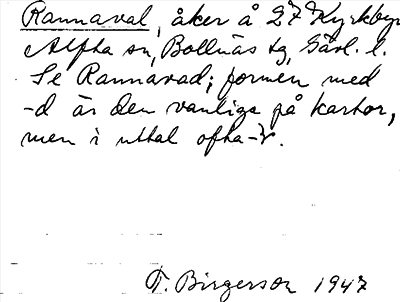 Rannaval, åker å 27 Kyrkbyn
Alfta sn, Bollnäs tg, Gävl. l.
Se Rannavad; formen med
-d är den vanliga på kartor,
men i uttal ofta -r.
T. Birgerson 1947